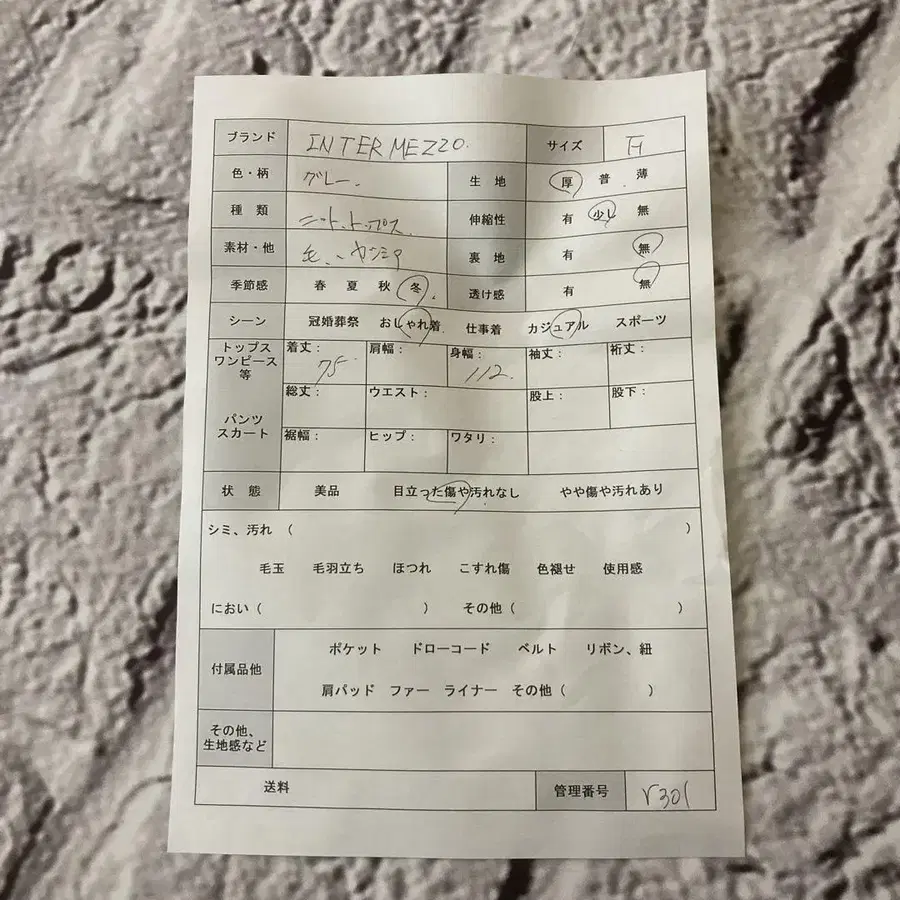 ブランド INTERMEZZO. サイズ
色・柄 グレー. 生地 厚 普 薄
種類 ニット、トップス 伸縮性 有 少し 無
素材・他 毛、カシミヤ 裏地 有 無
季節感 春 夏 秋 冬 透け感 有 無
シーン 冠婚葬祭 おしゃれ着 仕事着 カジュアル スポーツ
トップス ワンピース 等 着丈: 75 肩幅: 身幅: 112. 袖丈: 裄丈:
パンツ スカート 総丈: ウエスト: 股上: 股下:
裾幅: ヒップ: ワタリ:
状態 美品 目立った傷や汚れなし やや傷や汚れあり
シミ、汚れ ( )
毛玉 毛羽立ち ほつれ こすれ傷 色褪せ 使用感
におい ( ) その他 ( )
付属品他 ポケット ドローコード ベルト リボン、紐
肩パッド ファー ライナー その他 ( )
その他、
生地感など
送料 管理番号 r301